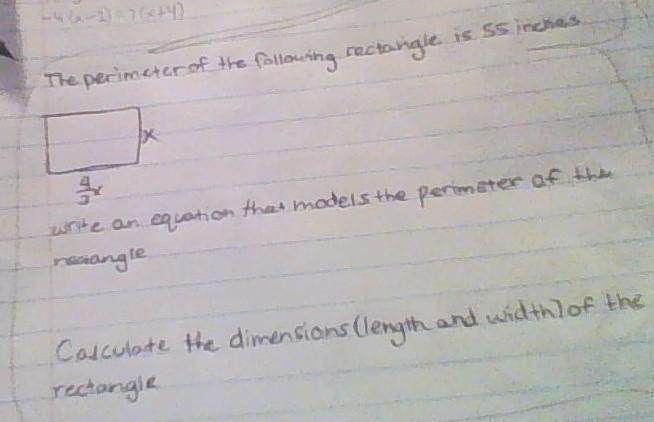 -4(x-2)=7(x+4)
The perimeter of the following rectangle is 55 inches
x
write an equation that models the perimeter of the
rectangle
Calculate the dimensions (length and width) of the
rectangle